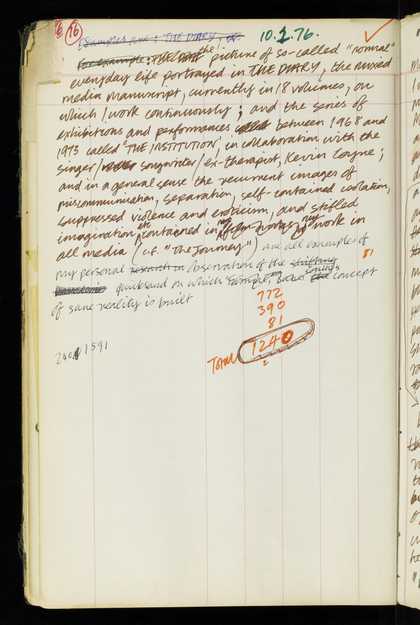 76
10.2.76.
for example: the picture of so-called "normal"
everyday life portrayed in THE DIARY, the mixed
media manuscript, currently in 18 volumes, on
which I work continuously; and the series of
exhibitions and performances called between 1968 and
1973 called "THE INSTITUTION", in collaboration with the
singer/ songwriter/ex-therapist, Kevin Coyne;
and in a general sense the recurrent images of
miscommunication, separation, self-contained isolation,
suppressed violence and eroticism, and stifled
imagination, contained in my work in
all media (i.e. "The Journey") are all examples of
my personal research in observation of the shifting
quicksand on which concept
of sane reality is built
81
772
390
81
Total 1240
1591